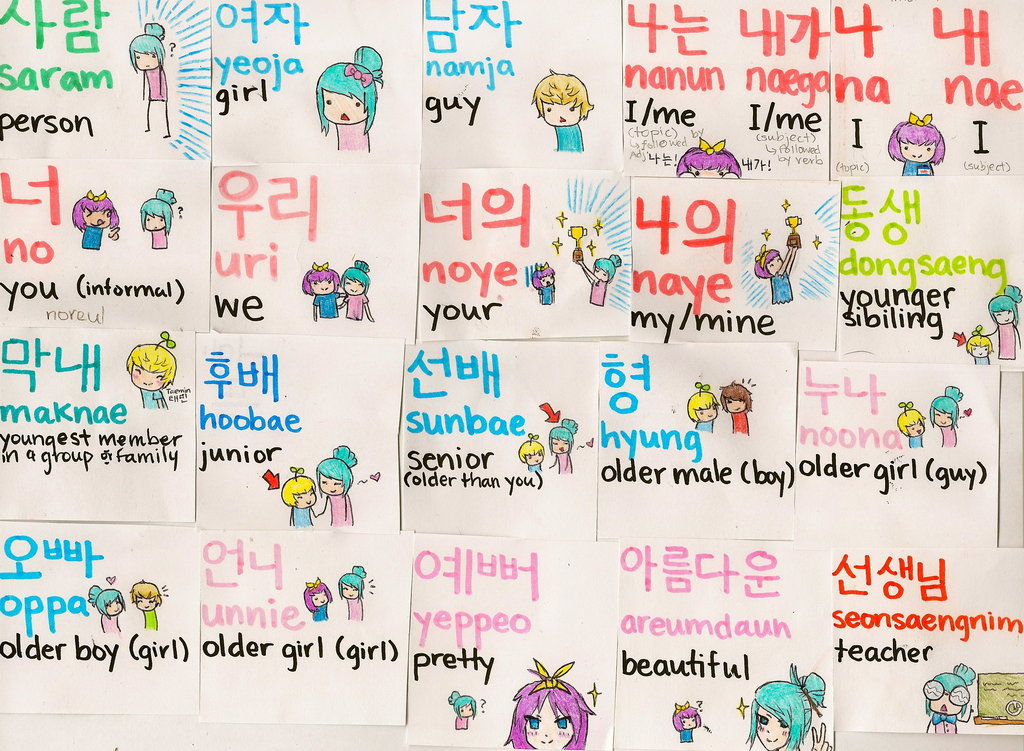 사람
saram
person
?
여자
yeoja
girl
남자
namja
guy
나는 내가
nanun naega
I/me I/me
(topic) (subject)
↳ followed by Adj ↳ followed by verb
나는! 내가!
나 내
na nae
I I
(topic) (subject)
너
no
you (informal)
noreul
?
우리
uri
we
너의
noye
your
나의
naye
my/mine
동생
dongsaeng
younger
sibiling
막내
maknae
youngest member
in a group or family
Taemin
태민
후배
hoobae
junior
선배
sunbae
senior
(older than you)
형
hyung
older male (boy)
누나
noona
older girl (guy)
오빠
oppa
older boy (girl)
언니
unnie
older girl (girl)
예뻐
yeppeo
pretty
?
아름다운
areumdaun
beautiful
?
선생님
seonsaengnim
teacher